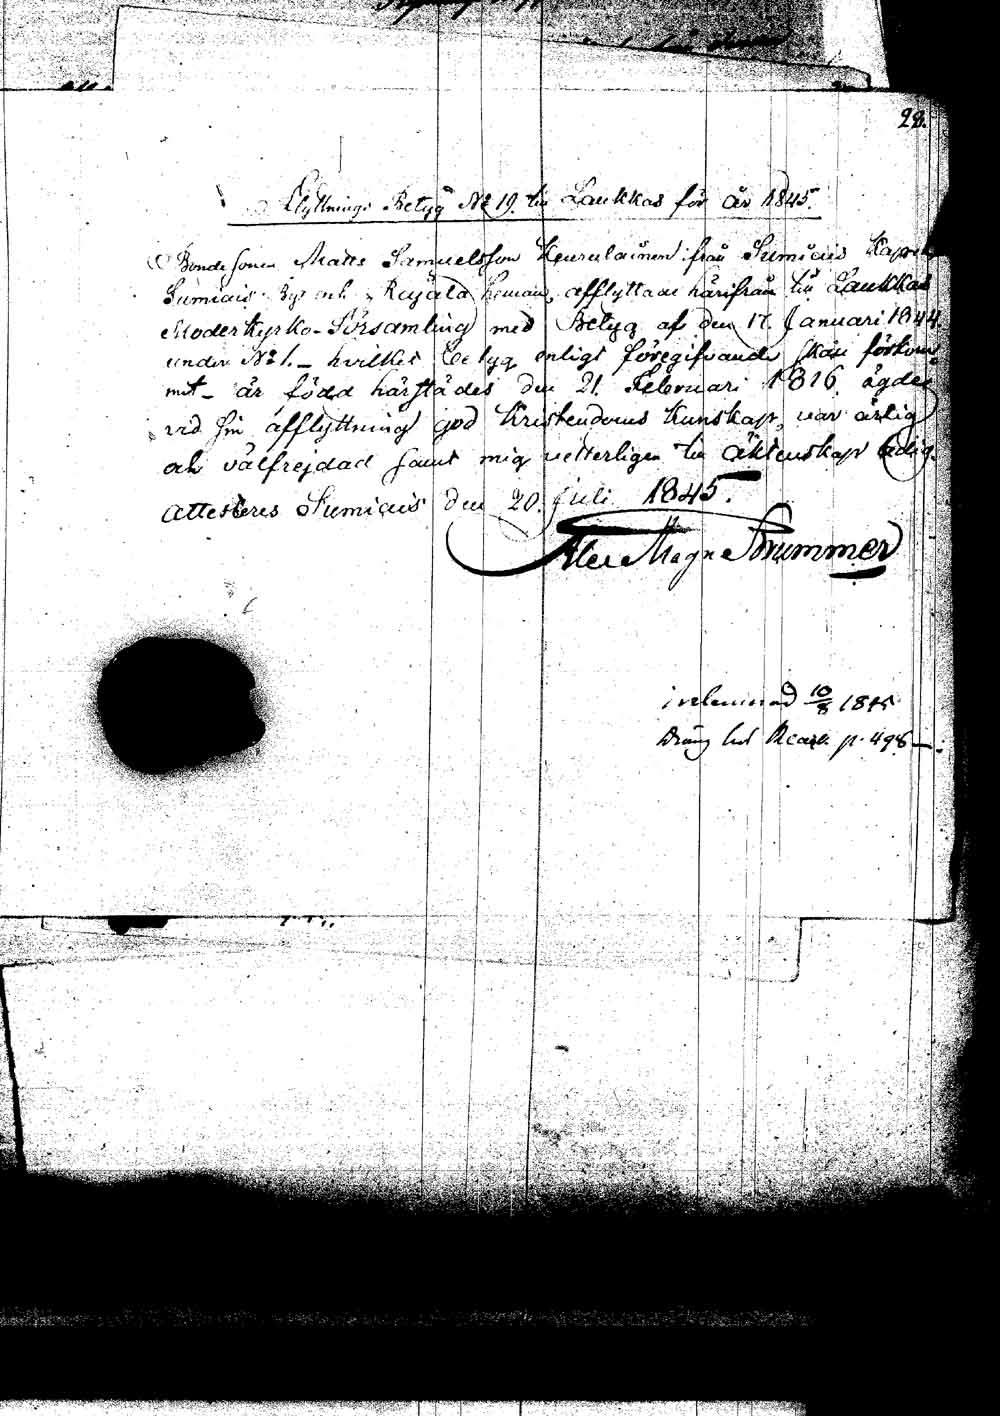 28.
Flyttnings Betyg № 19. till Laukkas för år 1845.
Bondesonen Matts Samuelsson Keurulainen från Sumiais Kapell
Sumiais By och Rajala heman, afflyttade härifrån till Laukkas
Moderkyrko-Församling med Betyg af den 17. Januari 1844.
under № 1. – hvilket betyg enligt föregifvande skall förkom-
mit – är född härstädes den 21. Februari 1816, ägde
vid sin afflyttning god Kristendoms Kunskap, var ärlig
och välfrejdad samt mig vetterligen till äktenskap ledig.
Attesteres Sumiais den 20. Juli 1845.
Alex Magn Brummer
inlemnad 10/8 1845
Dräng p. 498